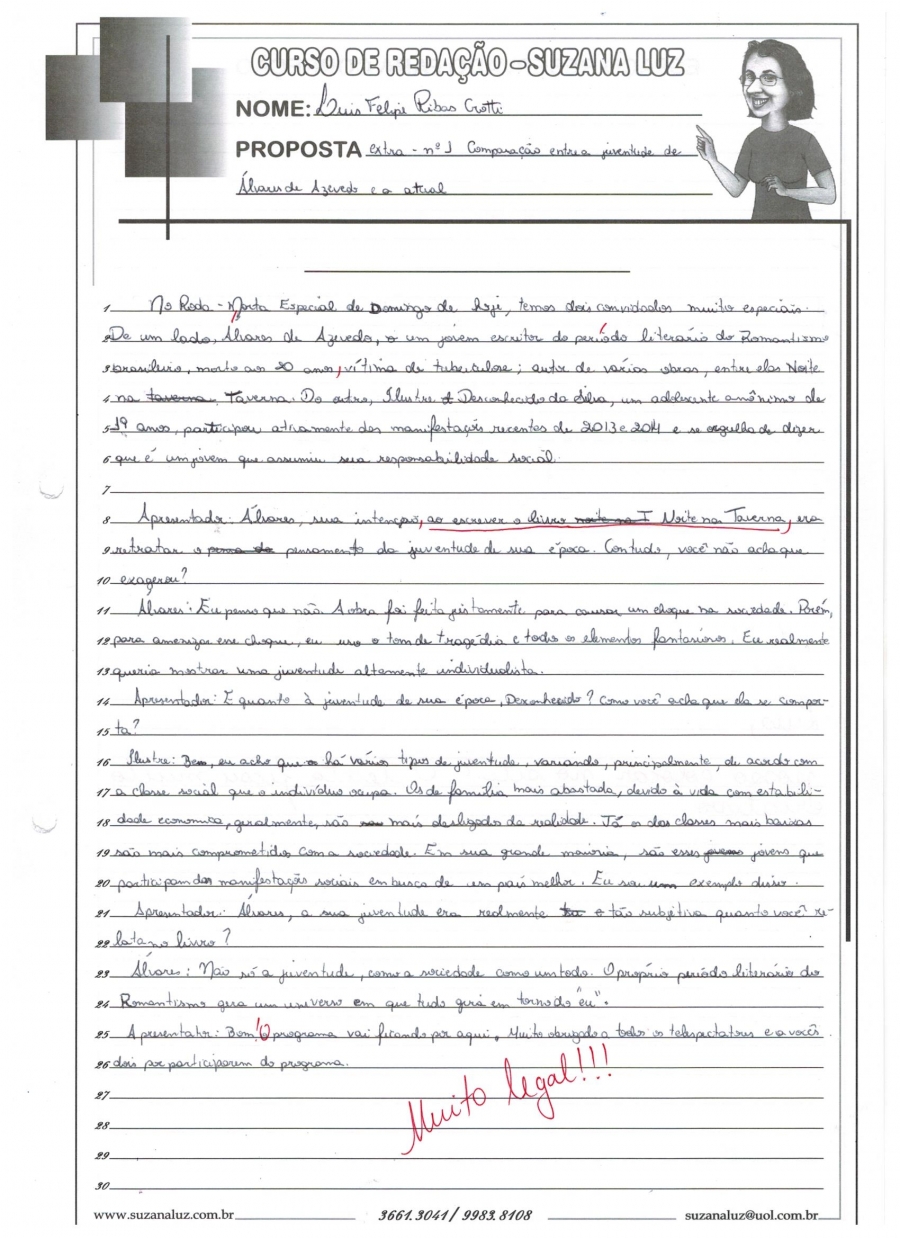 CURSO DE REDAÇÃO - SUZANA LUZ
NOME: Luis Felipe Ribas Crotti
PROPOSTA extra - nº 1 Comparação entre a juventude de
Álvares de Azevedo e a atual
1 No Roda - Morta Especial de Domingo de hoje, temos dois convidados muito especiais.
2 De um lado, Álvares de Azevedo, um jovem escritor do período literário do Romantismo
3 brasileiro, morto aos 20 anos, vítima de tuberculose; autor de várias obras, entre elas Noite
4 na taverna Taverna. Do outro, Ilustre Desconhecido da Silva, um adolescente anônimo de
5 19 anos, participou ativamente das manifestações recentes de 2013 e 2014 e se orgulha de dizer
6 que é um jovem que assumiu sua responsabilidade social.
7
8 Apresentador: Álvares, sua intenção, ao escrever o livro noite na T Noite na Taverna, era
9 retratar o pensamento da juventude de sua época. Contudo, você não acha que
10 exagerou?
11 Álvares: Eu penso que não. A obra foi feita justamente para causar um choque na sociedade. Porém,
12 para amenizar esse choque, eu uso o tom de tragédia e todos os elementos fantasiosos. Eu realmente
13 queria mostrar uma juventude altamente individualista.
14 Apresentador: E quanto à juventude de sua época, Desconhecido? Como você acha que ela se compor-
15 ta?
16 Ilustre: Bem, eu acho que há vários tipos de juventude, variando, principalmente, de acordo com
17 a classe social que o indivíduo ocupa. Os de família mais abastada, devido à vida com estabili-
18 dade economica, geralmente, são mais desligados da realidade. Já os das classes mais baixas
19 são mais comprometidos com a sociedade. Em sua grande maioria, são esses jovens jovens que
20 participam das manifestações sociais em busca de um país melhor. Eu sou um exemplo disso.
21 Apresentador: Álvares, a sua juventude era realmente tão subjetiva quanto você re-
22 lata no livro?
23 Álvares: Não só a juventude, como a sociedade como um todo. O próprio período literário do
24 Romantismo gera um universo em que tudo gira em torno do "eu".
25 Apresentador: Bom! O programa vai ficando por aqui. Muito obrigado a todos os telespectatores e a vocês
26 dois por participarem do programa.
27
Muito legal!!!
28
29
30
www.suzanaluz.com.br 3661.3041 / 9983.8108 suzanaluz@uol.com.br